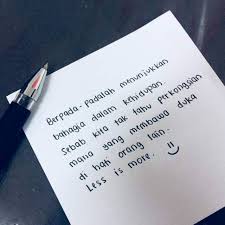 Berpada-padalah menunjukkan
bahagia dalam kehidupan.
Sebab kita tak tahu perkongsian
mana yang membawa duka
di hati orang lain.
Less is more. :)